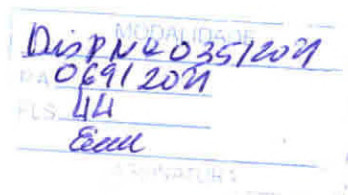 MODALIDADE
Disp Nº 035/2021
P.A 069/2021
FLS. 44
ASSINATURA